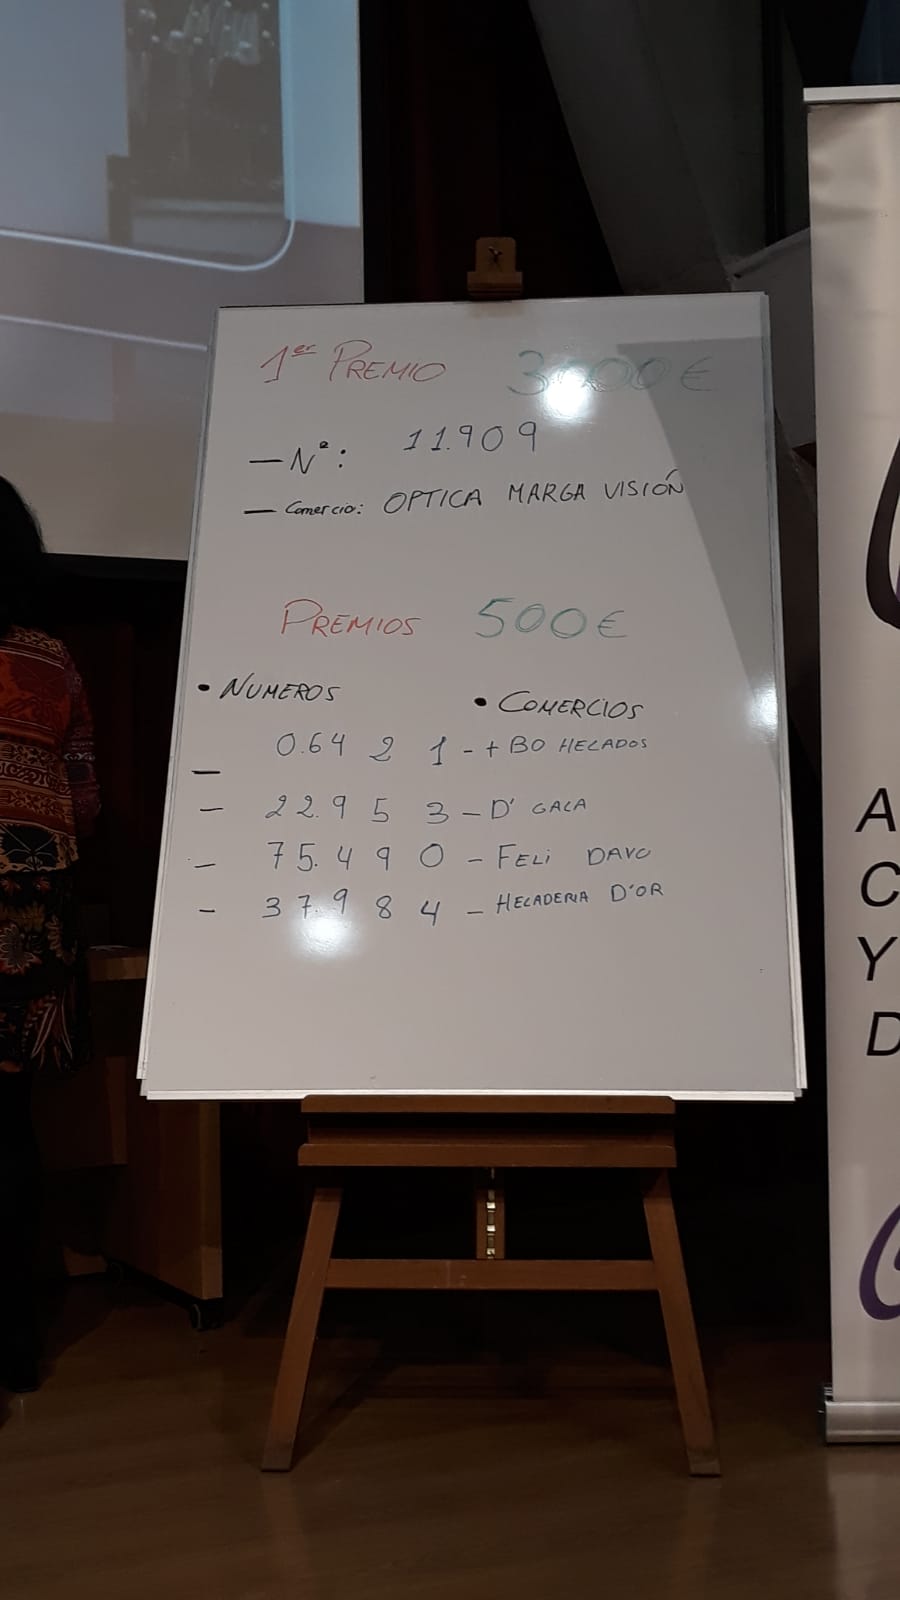 1er PREMIO 3000€
— Nº: 11.909
— Comercio: OPTICA MARGA VISIÓN
PREMIOS 500€
• NUMEROS • COMERCIOS
— 0.64 2 1 - + BO HELADOS
— 22.9 5 3 — D' GALA
— 75.4 9 0 — FELI DAVO
— 37.9 8 4 — HELADERIA D'OR
A
C
Y
D